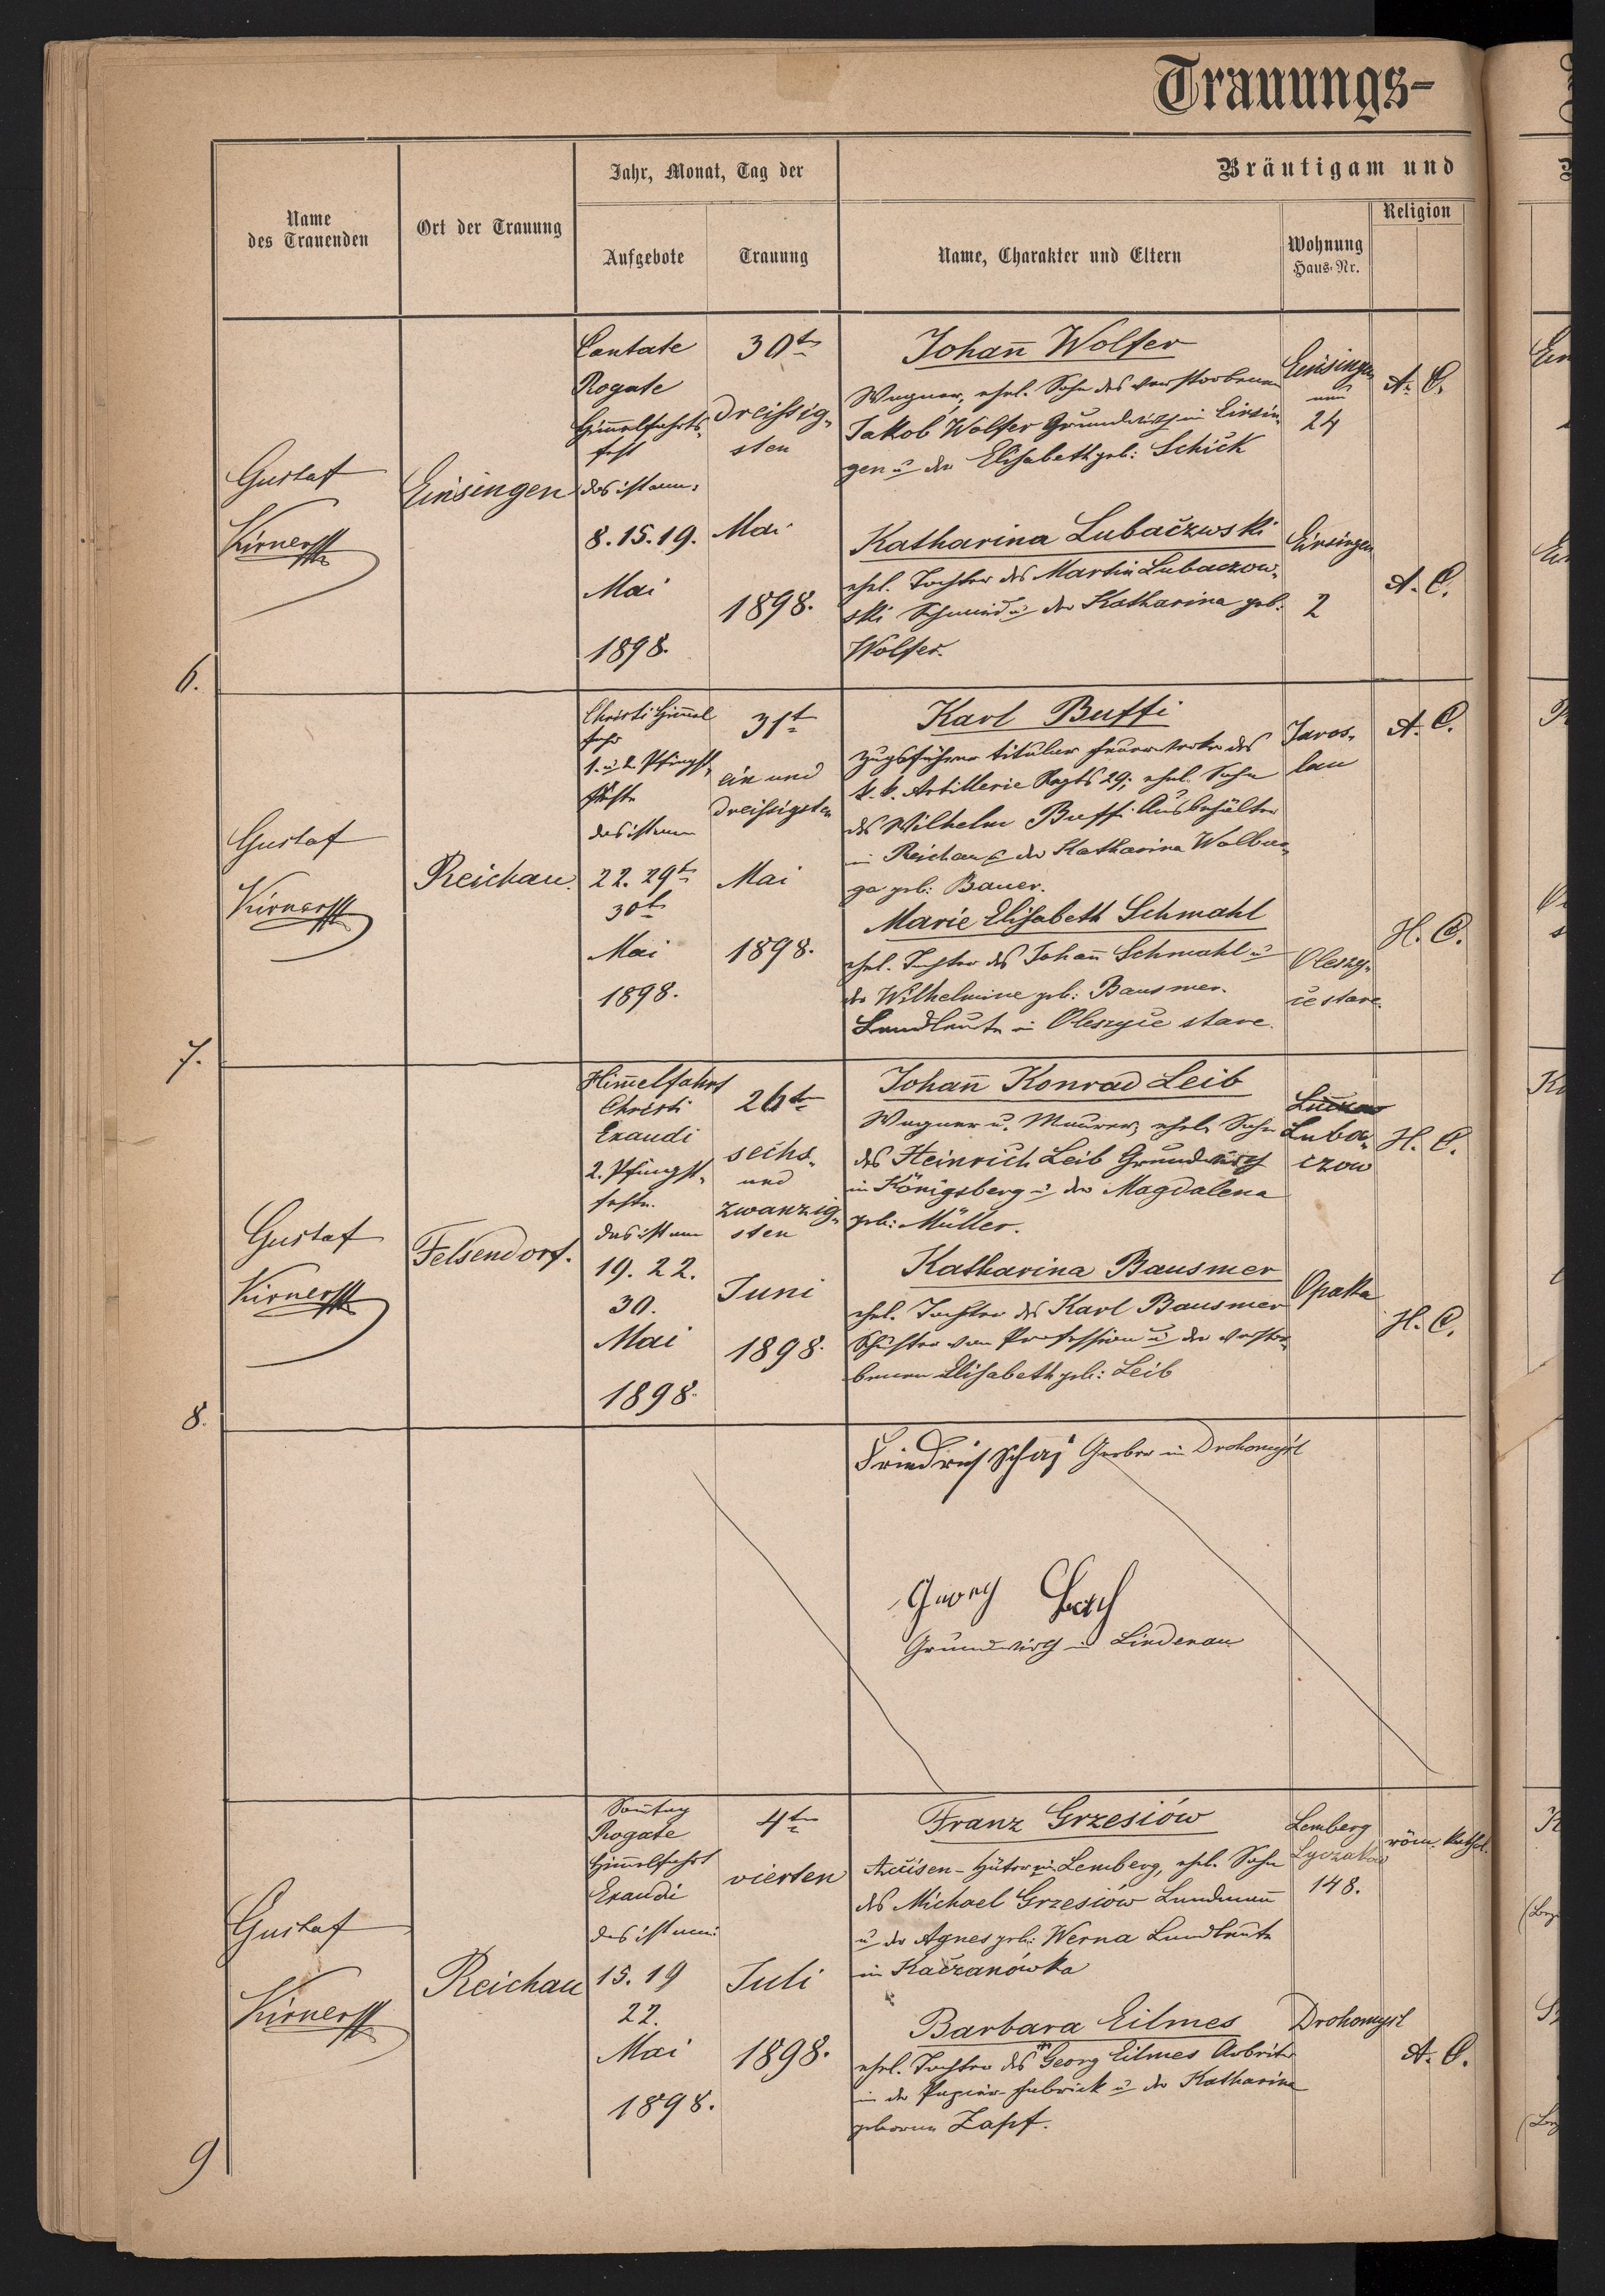 Trauungs-
Name des Trauenden
Ort der Trauung
Jahr, Monat, Tag der
Aufgebote
Trauung
Bräutigam und
Name, Charakter und Eltern
Wohnung Haus-Nr.
Religion
6.
Gustaf
Kirner
Einsingen
Cantate
Rogate
Him̄elfahrts-
fest
das ist am:
8. 15. 19.
Mai
1898.
30ten
dreissig-
sten
Mai
1898.
Johañ Wolfer
Wagner, ehel. Sohn des verstorbenen
Jakob Wolfer Grundwirth in Einsin-
gen u. der Elisabeth geb: Schick
Einsingen
24
A. C.
Katharina Lubaczwski
ehel. Tochter des Martin Lubaczow-
ski Schmied u. der Katharina geb.
Wolfer.
Einsingen
2
A. C.
7.
Gustaf
Kirner
Reichau.
Christi Him̄el
fahrt
1. u. 2. Pfingst-
das ist am
22. 29t
30t
Mai
1898.
31t
ein und
dreissigsten
Mai
1898.
Karl Buffi
Zugsführer titular Feuerwerker des
k. k. Artillerie Regts 29; ehel. Sohn
des Wilhelm Buffi Ausbehälter
in Reichau u. der Katharina Walbur-
ga geb: Bauer.
Jaros-
lau
A. C.
Marie Elisabeth Schmahl
ehel. Tochter des Johañ Schmahl u.
der Wilhelmine geb: Bausmer.
Landleute in Oleszyce stare.
Oleszy-
ce stare.
H. C.
8.
Gustaf
Kirner
Felsendorf.
Him̄elfahrt
Christi
Exaudi
2. Pfingst-
feste.
das ist am
19. 22.
30.
Mai
1898.
26ten
sechs-
und
zwanzig-
sten
Juni
1898.
Johañ Konrad Leib
Wagner u. Maurer, ehel. Sohn
des Heinrich Leib Grundwirth
in Königsberg u. der Magdalena
geb: Müller.
Luba-
czow
H. C.
Katharina Bausmer
ehel. Tochter des Karl Bausmer
Schuster von Profession u. der verstor-
benen Elisabeth geb: Leib
Opaka
H. C.
Friedrich Gerber in Drohomyśl
Georg
Grundwirth in Lindenau
9
Gustaf
Kirner
Reichau
Son̄tag
Rogate
Him̄elfahrt
Exaudi
das ist am:
15. 19
22.
Mai
1898.
4ten
vierten
Juli
1898.
Franz Grzesiów
Accisen-Hüter in Lemberg, ehel. Sohn
des Michael Grzesiów Landmañ
u. der Agnes geb: Werna Landleute
in Kaczanówka
Lemberg
Lyczakow
148.
röm. kathol.
Barbara Eilmes
ehel. Tochter des Georg Eilmes Arbeiter
in der Papier-Fabrick u. der Katharina
geborne Zapf.
Drohomysl
A. C.